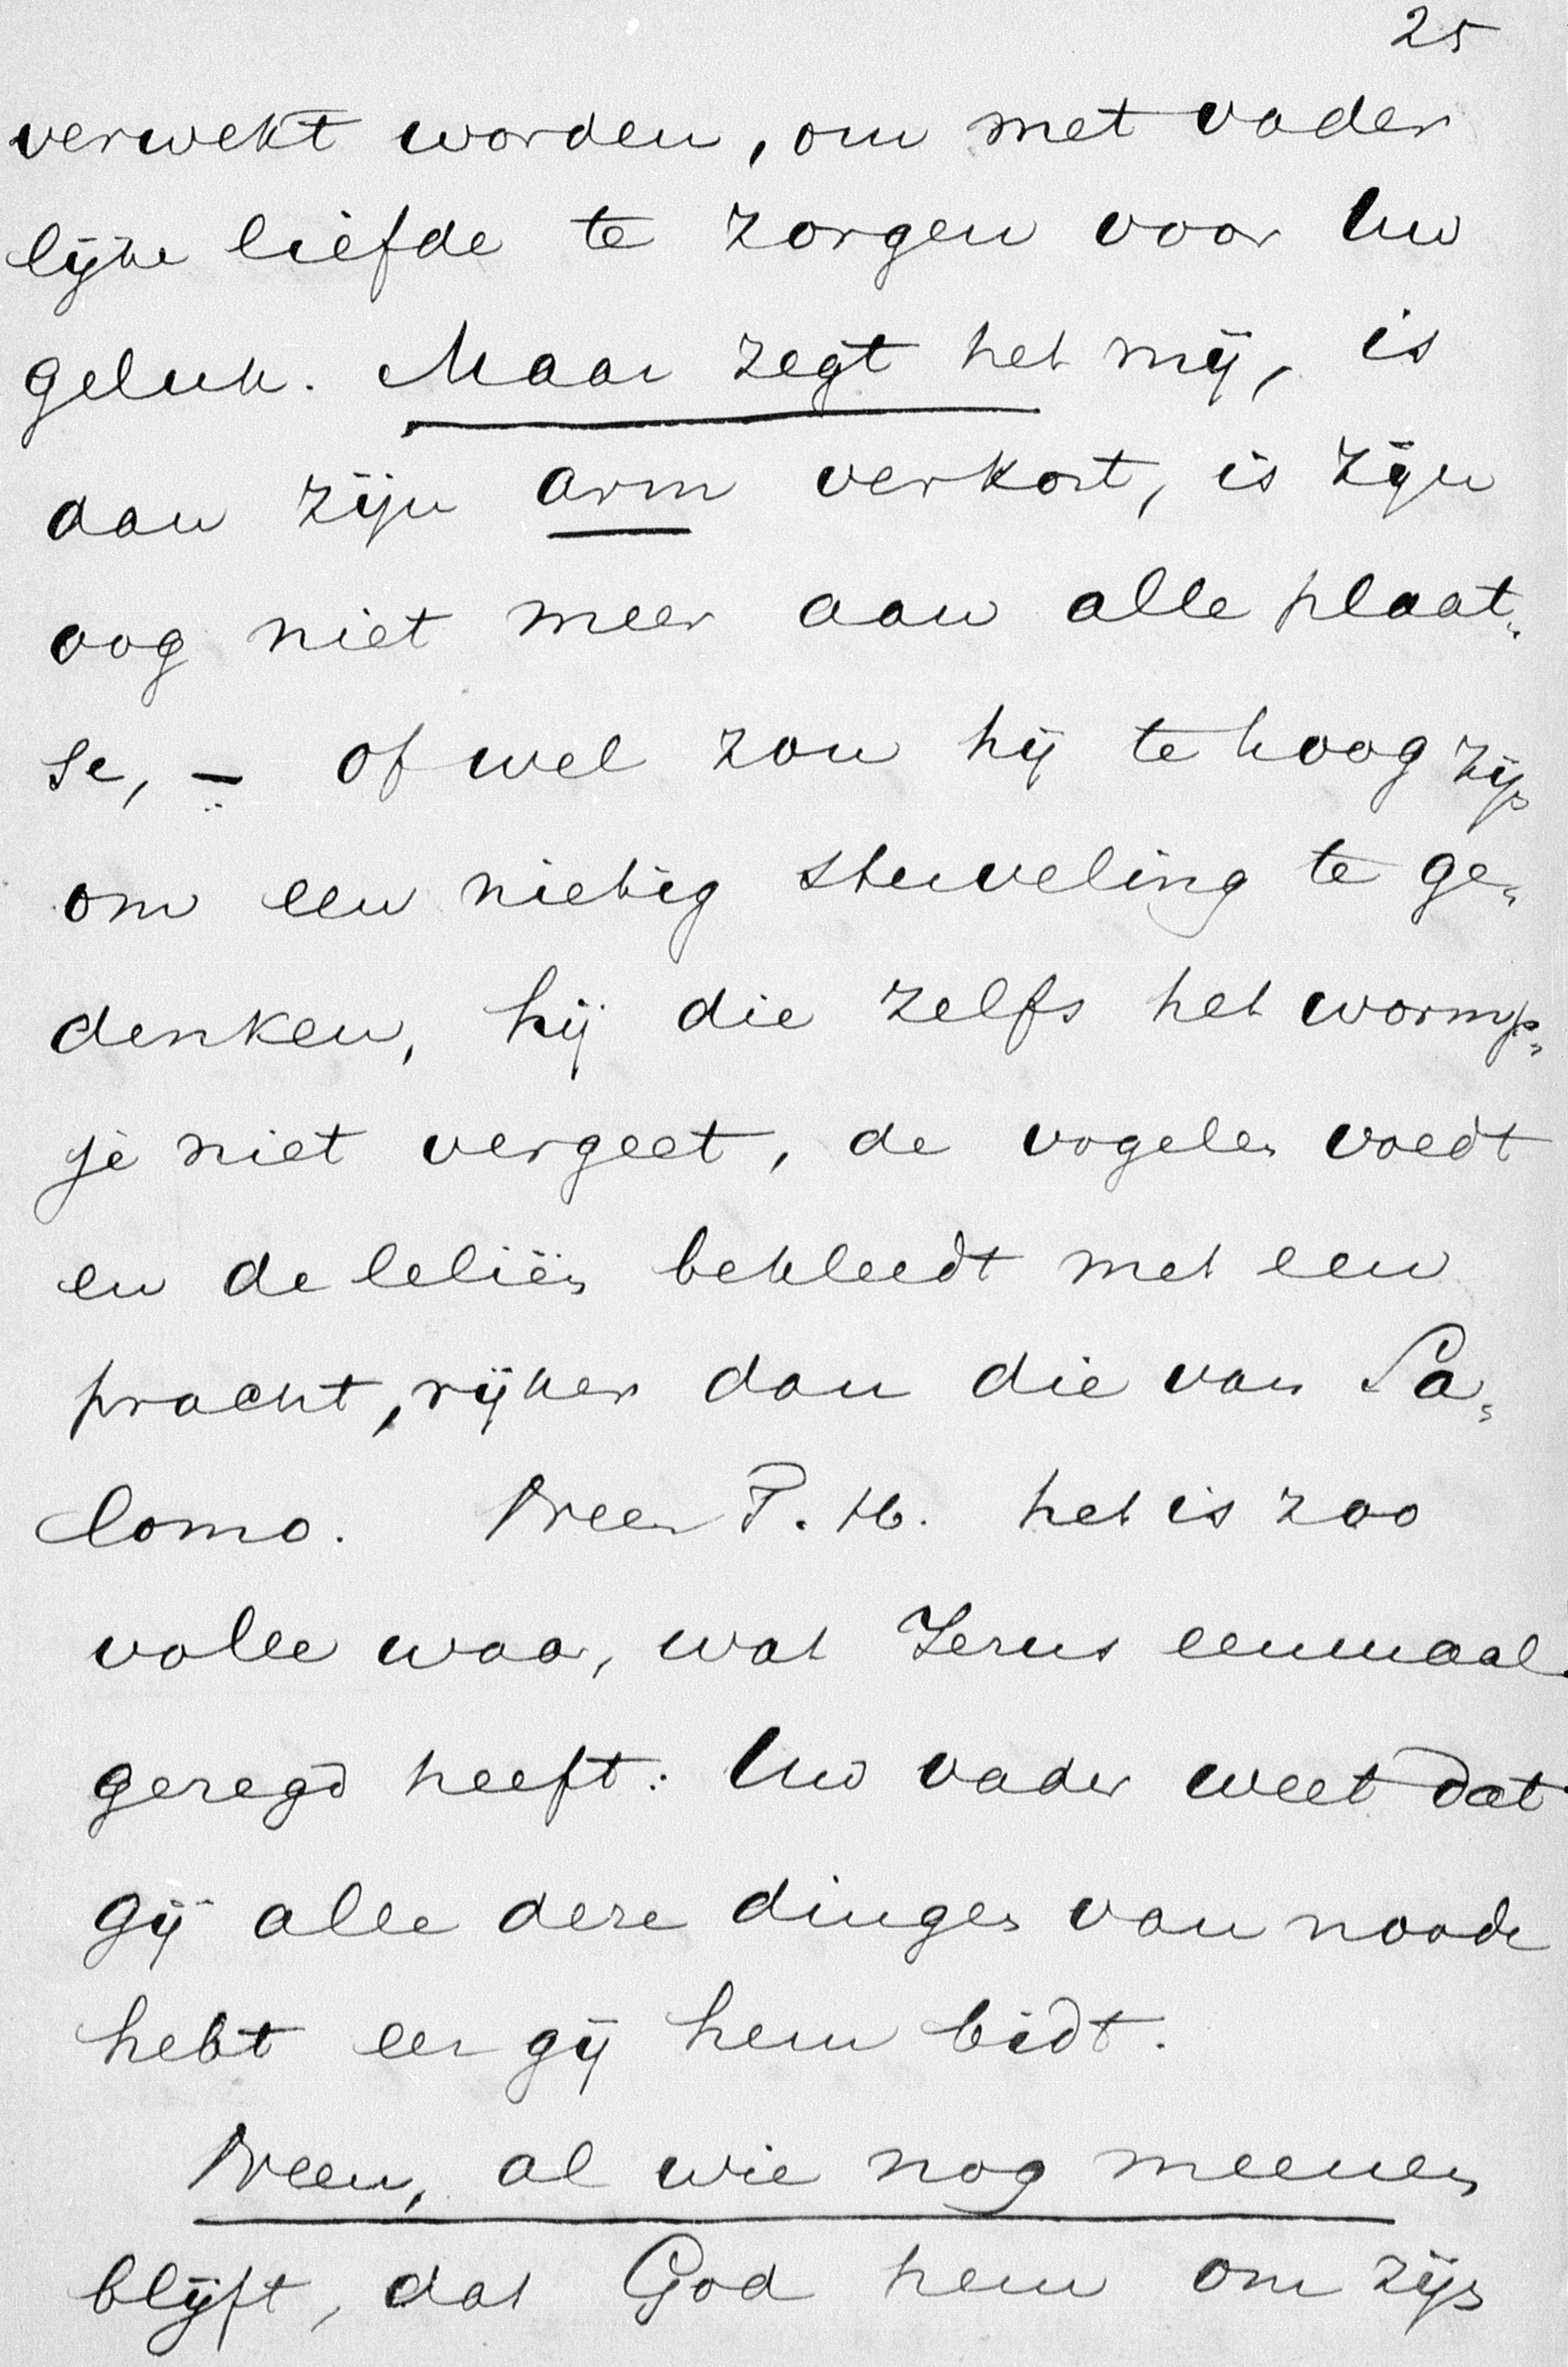 25
verwekt worden, om met vader
lijke liefde te zorgen voor Uw
geluk. Maar zegt het mij, is
dan zijn arm verkort, is zijn
oog niet meer aan alle plaat„
se, – of wel zou hij te hoog zijn
om een nietig sterveling te ge„
denken, hij die zelfs het wormp„
je niet vergeet, de vogelen voedt
en de leliën bekleedt met een
pracht, rijker dan die van Sa„
lomo. Neen T. H. het is zoo
volle waar, wat Jezus eenmaal
gezegd heeft: Uw vader weet dat
gij alle deze dingen van noode
hebt eer gij hem bidt.
Neen, al wie nog meenen
blijft, dat God hem om zijn